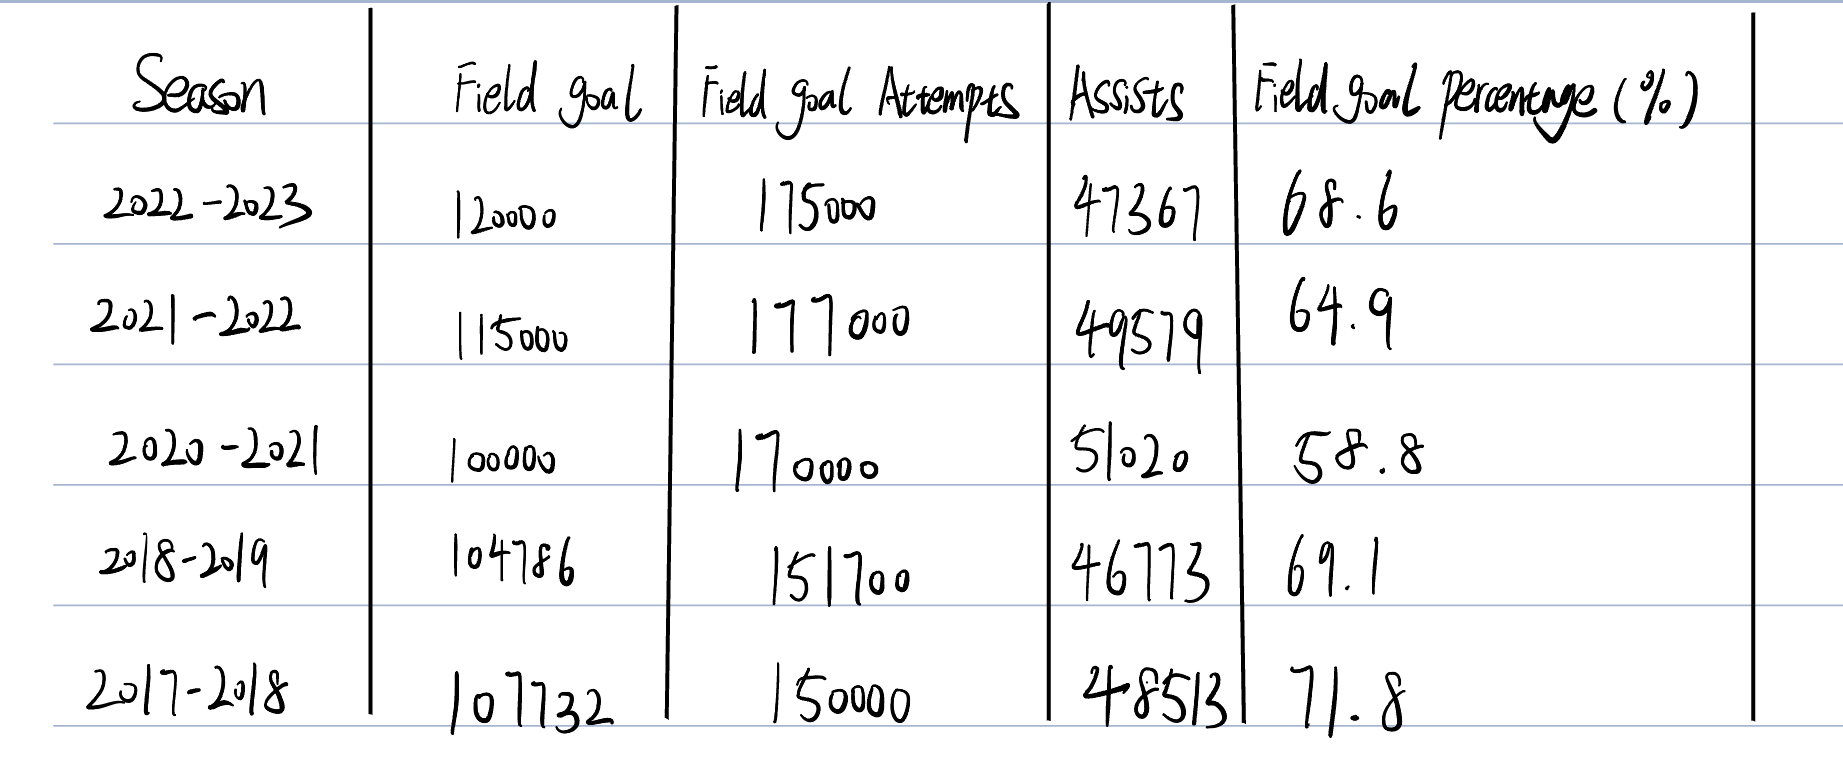 Season Field goal Field goal Attempts Assists Field goal percentage (%)
2022-2023 120000 175000 47367 68.6
2021-2022 115000 177000 49579 64.9
2020-2021 100000 170000 51020 58.8
2018-2019 104786 151700 46773 69.1
2017-2018 107732 150000 48513 71.8